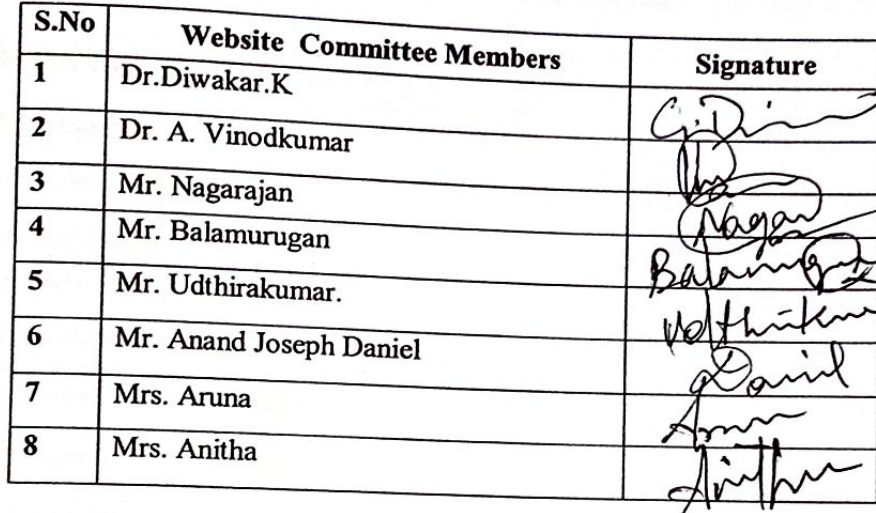 S.No Website Committee Members Signature
1 Dr.Diwakar.K
2 Dr. A. Vinodkumar
3 Mr. Nagarajan Nagar
4 Mr. Balamurugan
5 Mr. Udthirakumar.
6 Mr. Anand Joseph Daniel Daniel
7 Mrs. Aruna
8 Mrs. Anitha